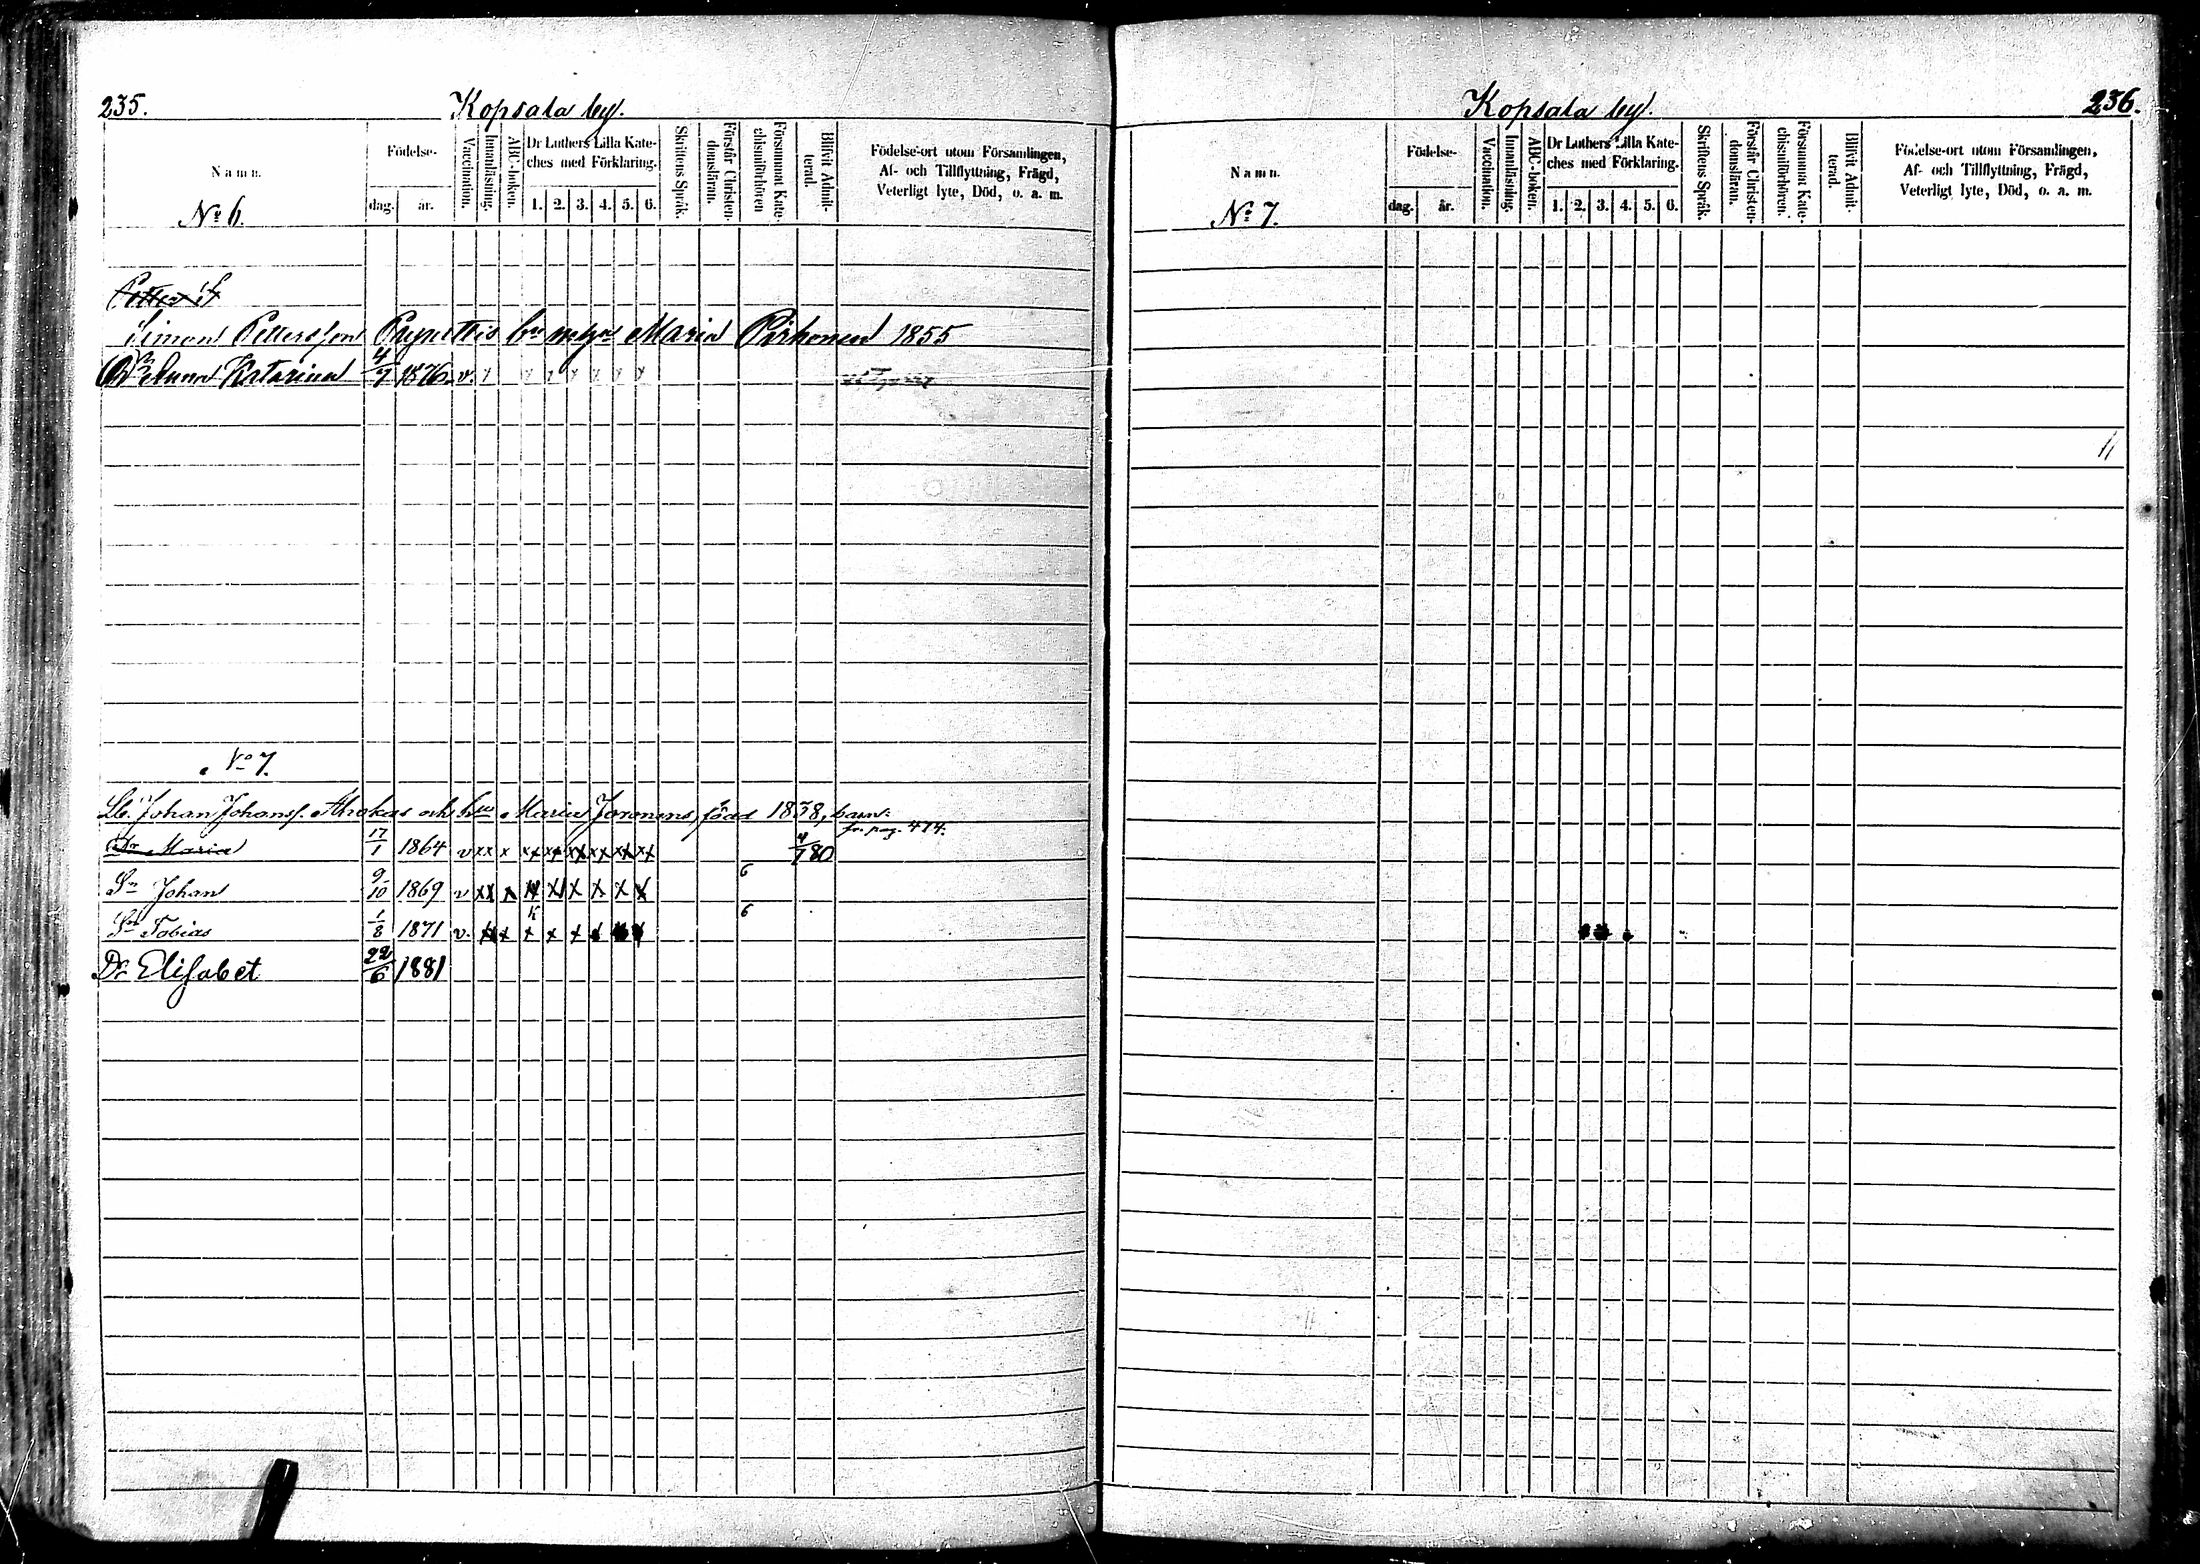 235.
Kopsala by.
Namn.
Födelse-
dag. år.
Vaccination.
Innanläsning.
ABC-boken.
Dr Luthers Lilla Kate-
ches med Förklaring.
1. 2. 3. 4. 5. 6.
Skriftens Språk.
Förstår Christen-
domsläran.
Försummat Kate-
chismiförhören
Blifvit Admit-
terad.
Födelse-ort utom Församlingen,
Af- och Tillflyttning, Frägd,
Veterligt lyte, Död, o. a. m.
No 6.
Simon Pettersson hu Maria Pirhonen 1855
Dr Anna Katarina 4/7 1876 v.
No 7.
Johan Johans. och hu Maria Joronen, född 1838, barn:
fr. pag. 474.
Dr Maria 17/1 1864 v xx x xx xx xx xx xx xx 4/7 80
6
Sn Johan 9/10 1869 v
K 6
Sn Tobias 1/8 1871 v.
Dr Elisabet 22/6 1881
Kopsala by.
236.
Namn.
Födelse-
dag. år.
Vaccination.
Innanläsning.
ABC-boken.
Dr Luthers Lilla Kate-
ches med Förklaring.
1. 2. 3. 4. 5. 6.
Skriftens Språk.
Förstår Christen-
domsläran.
Försummat Kate-
chismiförhören.
Blifvit Admit-
terad.
Födelse-ort utom Församlingen,
Af- och Tillflyttning, Frägd,
Veterligt lyte, Död, o. a. m.
No 7.